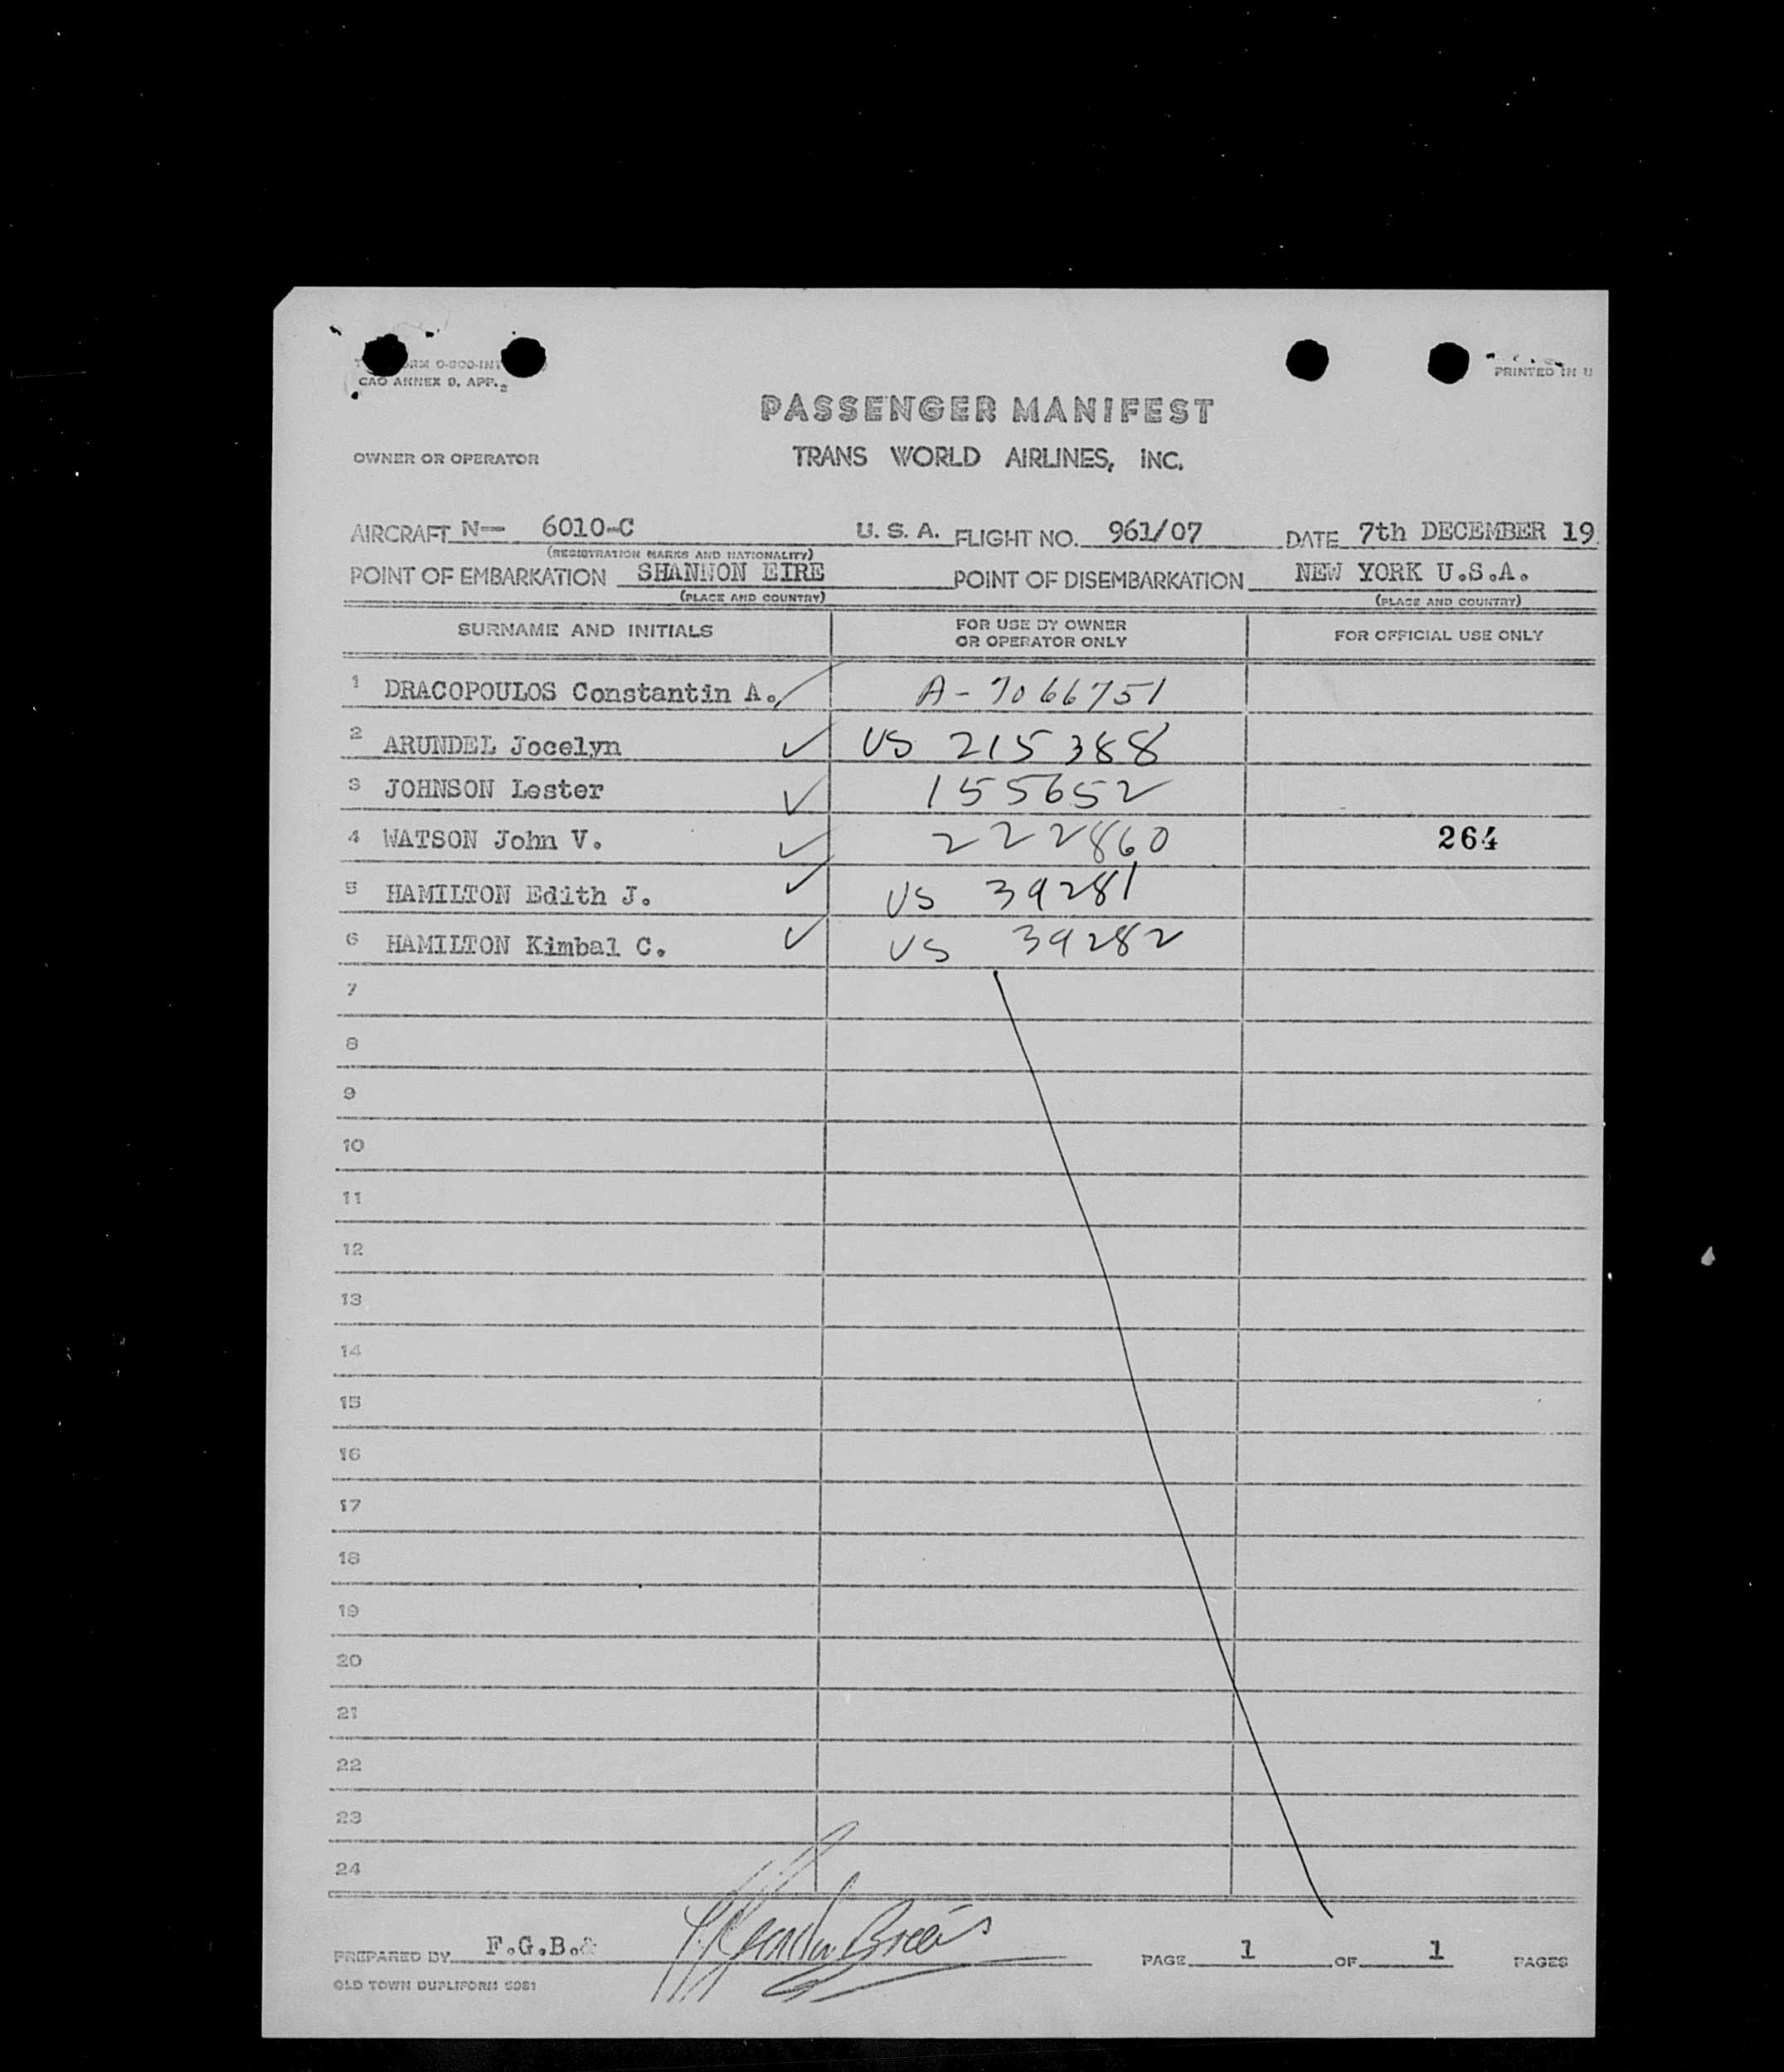 CAO ANNEX 9, APP. 2
PRINTED IN U
PASSENGER MANIFEST
OWNER OR OPERATOR TRANS WORLD AIRLINES, INC.
AIRCRAFT N— 6010-C U. S. A. FLIGHT NO. 961/07 DATE 7th DECEMBER 19
(REGISTRATION MARKS AND NATIONALITY)
POINT OF EMBARKATION SHANNON EIRE POINT OF DISEMBARKATION NEW YORK U.S.A.
(PLACE AND COUNTRY) (PLACE AND COUNTRY)
SURNAME AND INITIALS FOR USE BY OWNER OR OPERATOR ONLY FOR OFFICIAL USE ONLY
1 DRACOPOULOS Constantin A. A-7066751
2 ARUNDEL Jocelyn US 215388
3 JOHNSON Lester 155652
4 WATSON John V. 222860 264
5 HAMILTON Edith J. US 39281
6 HAMILTON Kimbal C. US 39282
7
8
9
10
11
12
13
14
15
16
17
18
19
20
21
22
23
24
PREPARED BY F.G.B. PAGE 1 OF 1 PAGES
OLD TOWN DUPLIFORM 5981